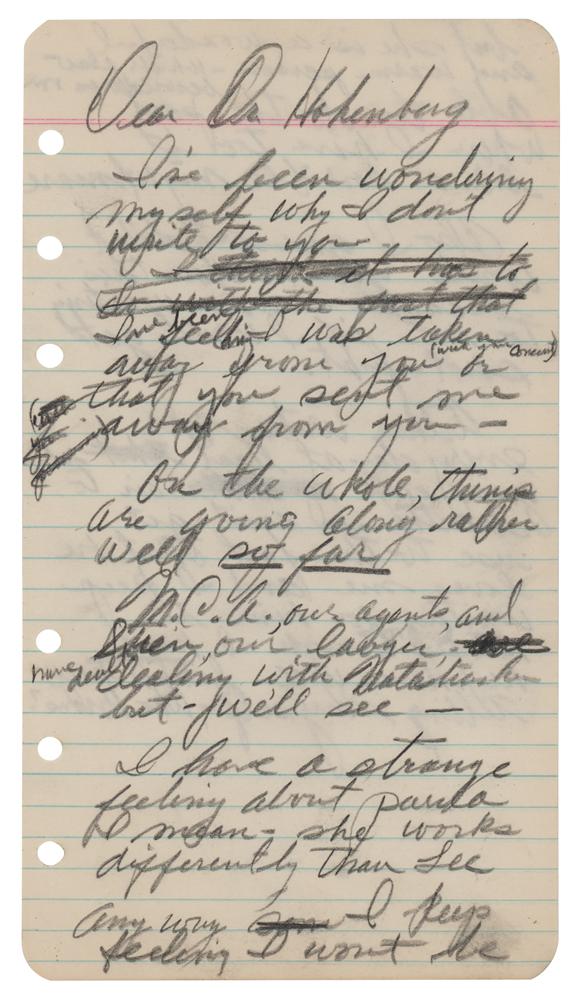 Dear Dr Hohenberg
I've been wondering
myself why I don't
write to you
I think it has to
do with the fact that
I've been feeling I was taken
away from you (with your consent) or
that you sent me
away from you —
On the whole, things
are going along rather
well so far
M.C.A., our agents, and
Stein, our lawyer, are
have dealing with Natasha
but - we'll see —
I have a strange
feeling about paula
I mean - she works
differently than Lee
any way I keep
feeling I won't be